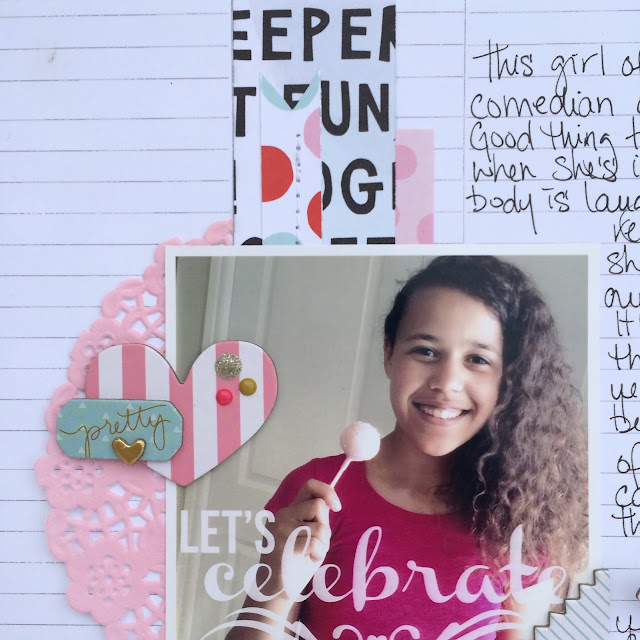 EEPER
T FUN
OG
This girl
comedian
Good thing
when she's
body is laug
re
sh
th
be
of
th
pretty
LET'S
celebrate